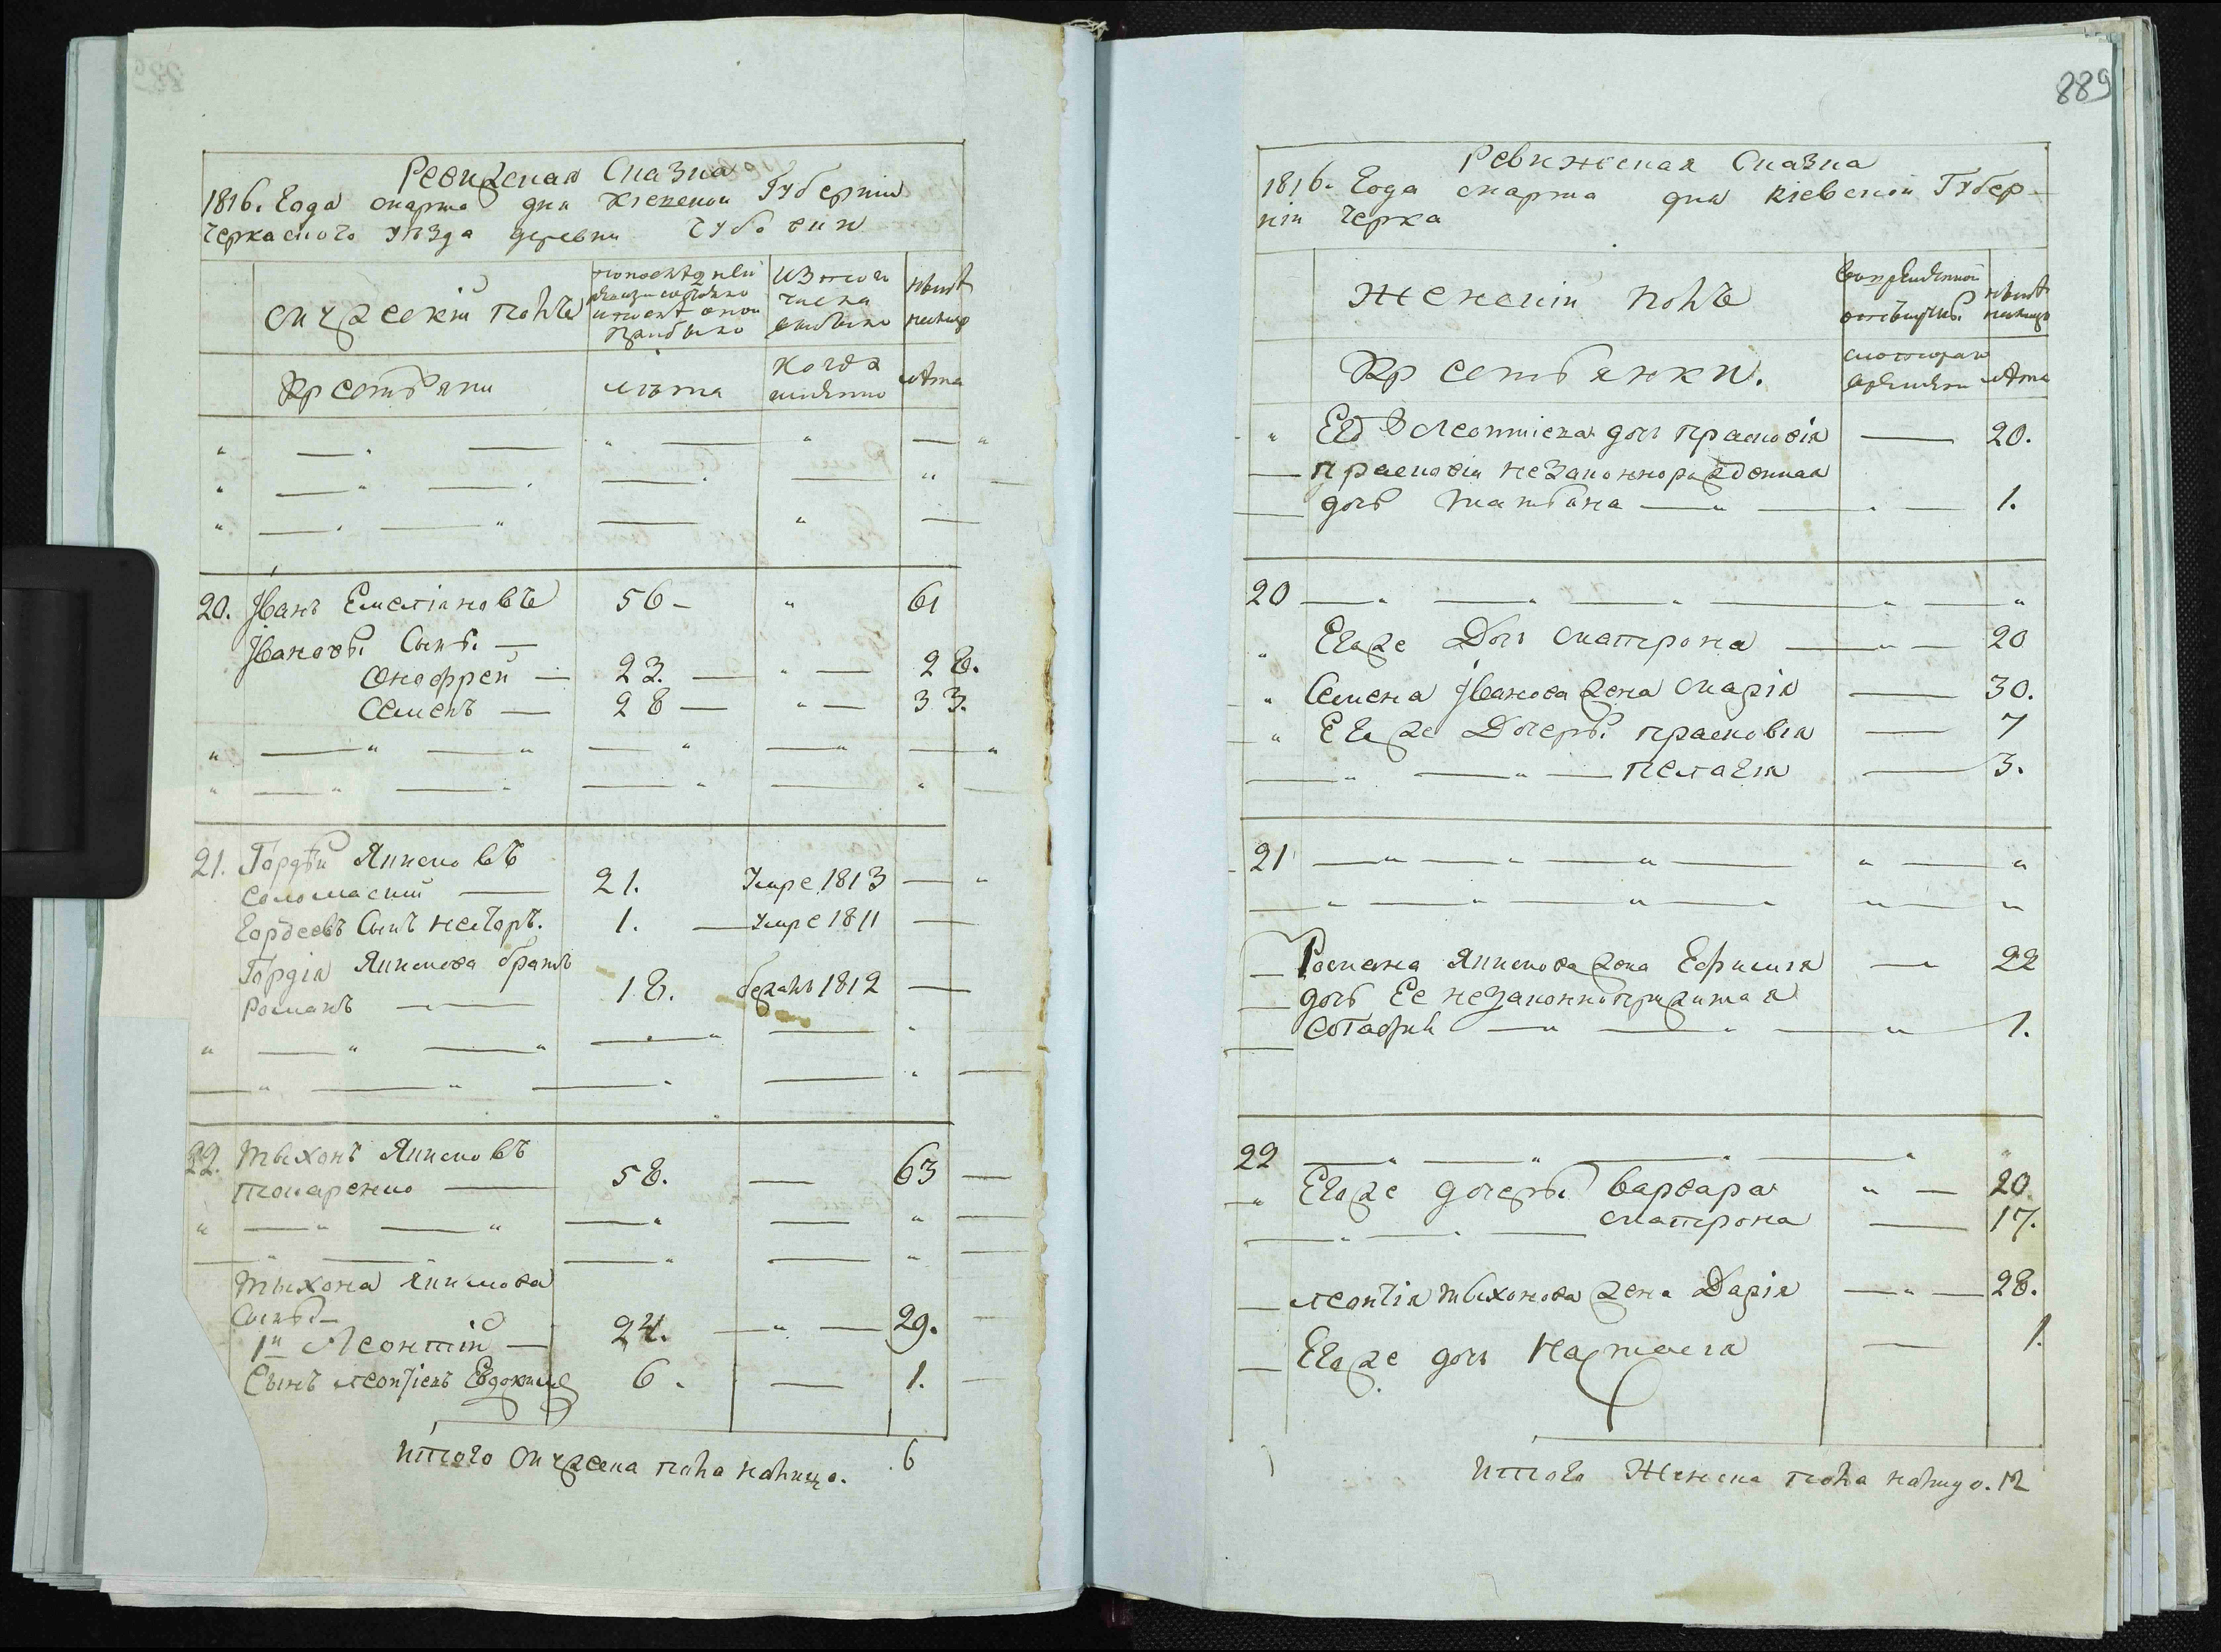 Ревижская Сказка
1816. Года марта дня Киевской Губернии
Черкаского уѣзда деревни
мужескій полъ
Из того числа выбыло
нынѣ налицо
Крестьяни
лѣта
когда имянно
лѣта
20. Іванъ Емеліяновъ 56 - " 61
Івановы Сыны —
Онофрей — 23. — " — 28.
Семенъ — 28 — " — 33.
21. Гордѣй Якимовъ
Соломаский — 21. Умре 1813 — "
Гордеевъ Сынъ Несторъ. 1. — Умре 1811 —
Гордія Якимова братъ
Романъ — 18. бежалъ 1812 —
22. Тыхонъ Якимовъ
58. — 63 —
Тыхона Якимова
Сыны —
1й Леонтій — 24. — " — 29.
Сынъ Леонтіевъ Евдокимъ 6. — 1.
Итого мужеска пола налицо. 6
889
Ревижская Сказка
1816. Года марта дня Кіевской Губер-
ніи Черка
Женскій полъ
нынѣ налицо
Крестьянки.
лѣта
" Его Леонтіева дочь Прасковія — 20.
— Прасковіи незаконнорожденная
дочь Татіана — 1.
20
" Его же Дочь Матрона — " — 20
" Семена Іванова жена Марія — 30.
" Его же Дочеры Прасковія — 7
— " — Пелагія — 3.
21
Романа Якимова жена Ефимія — 22
дочь Ее незаконноприжитая
— 1.
22
" Его же дочеры Варвара " — 20.
Матрона — 17.
Леонтія Тыхонова жена Дарія — " — 28.
Его же дочь — 1.
Итого Женска пола налицо. 12